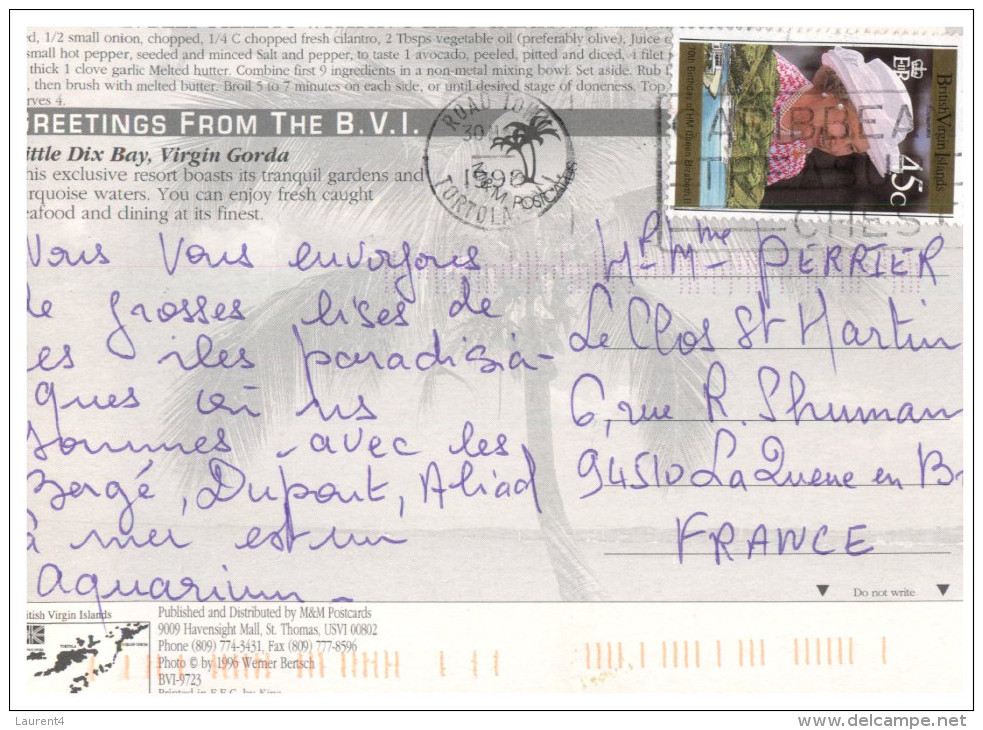 ed, 1/2 small onion, chopped, 1/4 C chopped fresh cilantro, 2 Tbsps vegetable oil (preferably olive), Juice o
small hot pepper, seeded and minced Salt and pepper, to taste 1 avocado, peeled, pitted and diced, 4 filet
thick 1 clove garlic Melted hutter. Combine first 9 ingredients in a non-metal mixing bowl. Set aside. Rub f
, then brush with melted butter. Broil 5 to 7 minutes on each side, or until desired stage of doneness. Top
rves 4.
GREETINGS FROM THE B.V.I.
ittle Dix Bay, Virgin Gorda
his exclusive resort boasts its tranquil gardens and
rquoise waters. You can enjoy fresh caught
eafood and dining at its finest.
ROAD TOWN
30
TORTOLA
M&M POSTCARDS
British Virgin Islands
45c
70th Birthday of HM Queen Elizabeth II
CARIBBEA
TR
CHEST
Vous Vous envoyons
de grosses bises de
ces îles paradisia-
ques où ns
sommes avec les
Bergé, Dupont, Aliad
a mer est un
aquarium -
Mr Mme PERRIER
Le Clos St Martin
6, rue R. Shuman
94510 La Queue en B-
FRANCE
Do not write
itish Virgin Islands
Published and Distributed by M&M Postcards
9009 Havensight Mall, St. Thomas, USVI 00802
Phone (809) 774-3431, Fax (809) 777-8596
Photo © by 1996 Werner Bertsch
BVI-9723
Printed in E.E.C. by King
Laurent4
www.delcampe.net